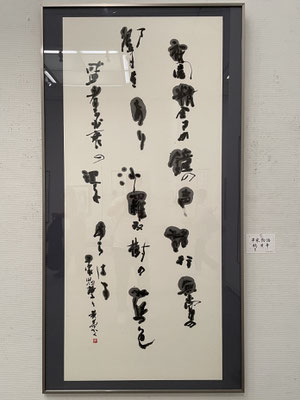 祇園精舎の鐘の声諸行無常の
響きあり沙羅双樹の花色
盛者必衰の理をあらはす
平家物語